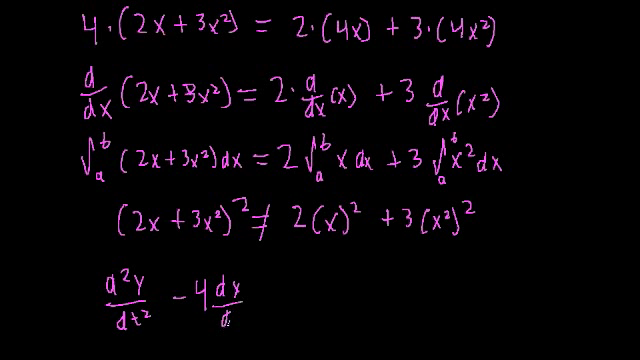 4·(2x+3x²) = 2·(4x) + 3·(4x²)
d/dx (2x+3x²) = 2·d/dx (x) + 3 d/dx (x²)
∫ₐᵇ (2x+3x²)dx = 2∫ₐᵇ x dx + 3∫ₐᵇ x² dx
(2x+3x²)² ≠ 2(x)² + 3(x²)²
d²y/dt² - 4 dy/d